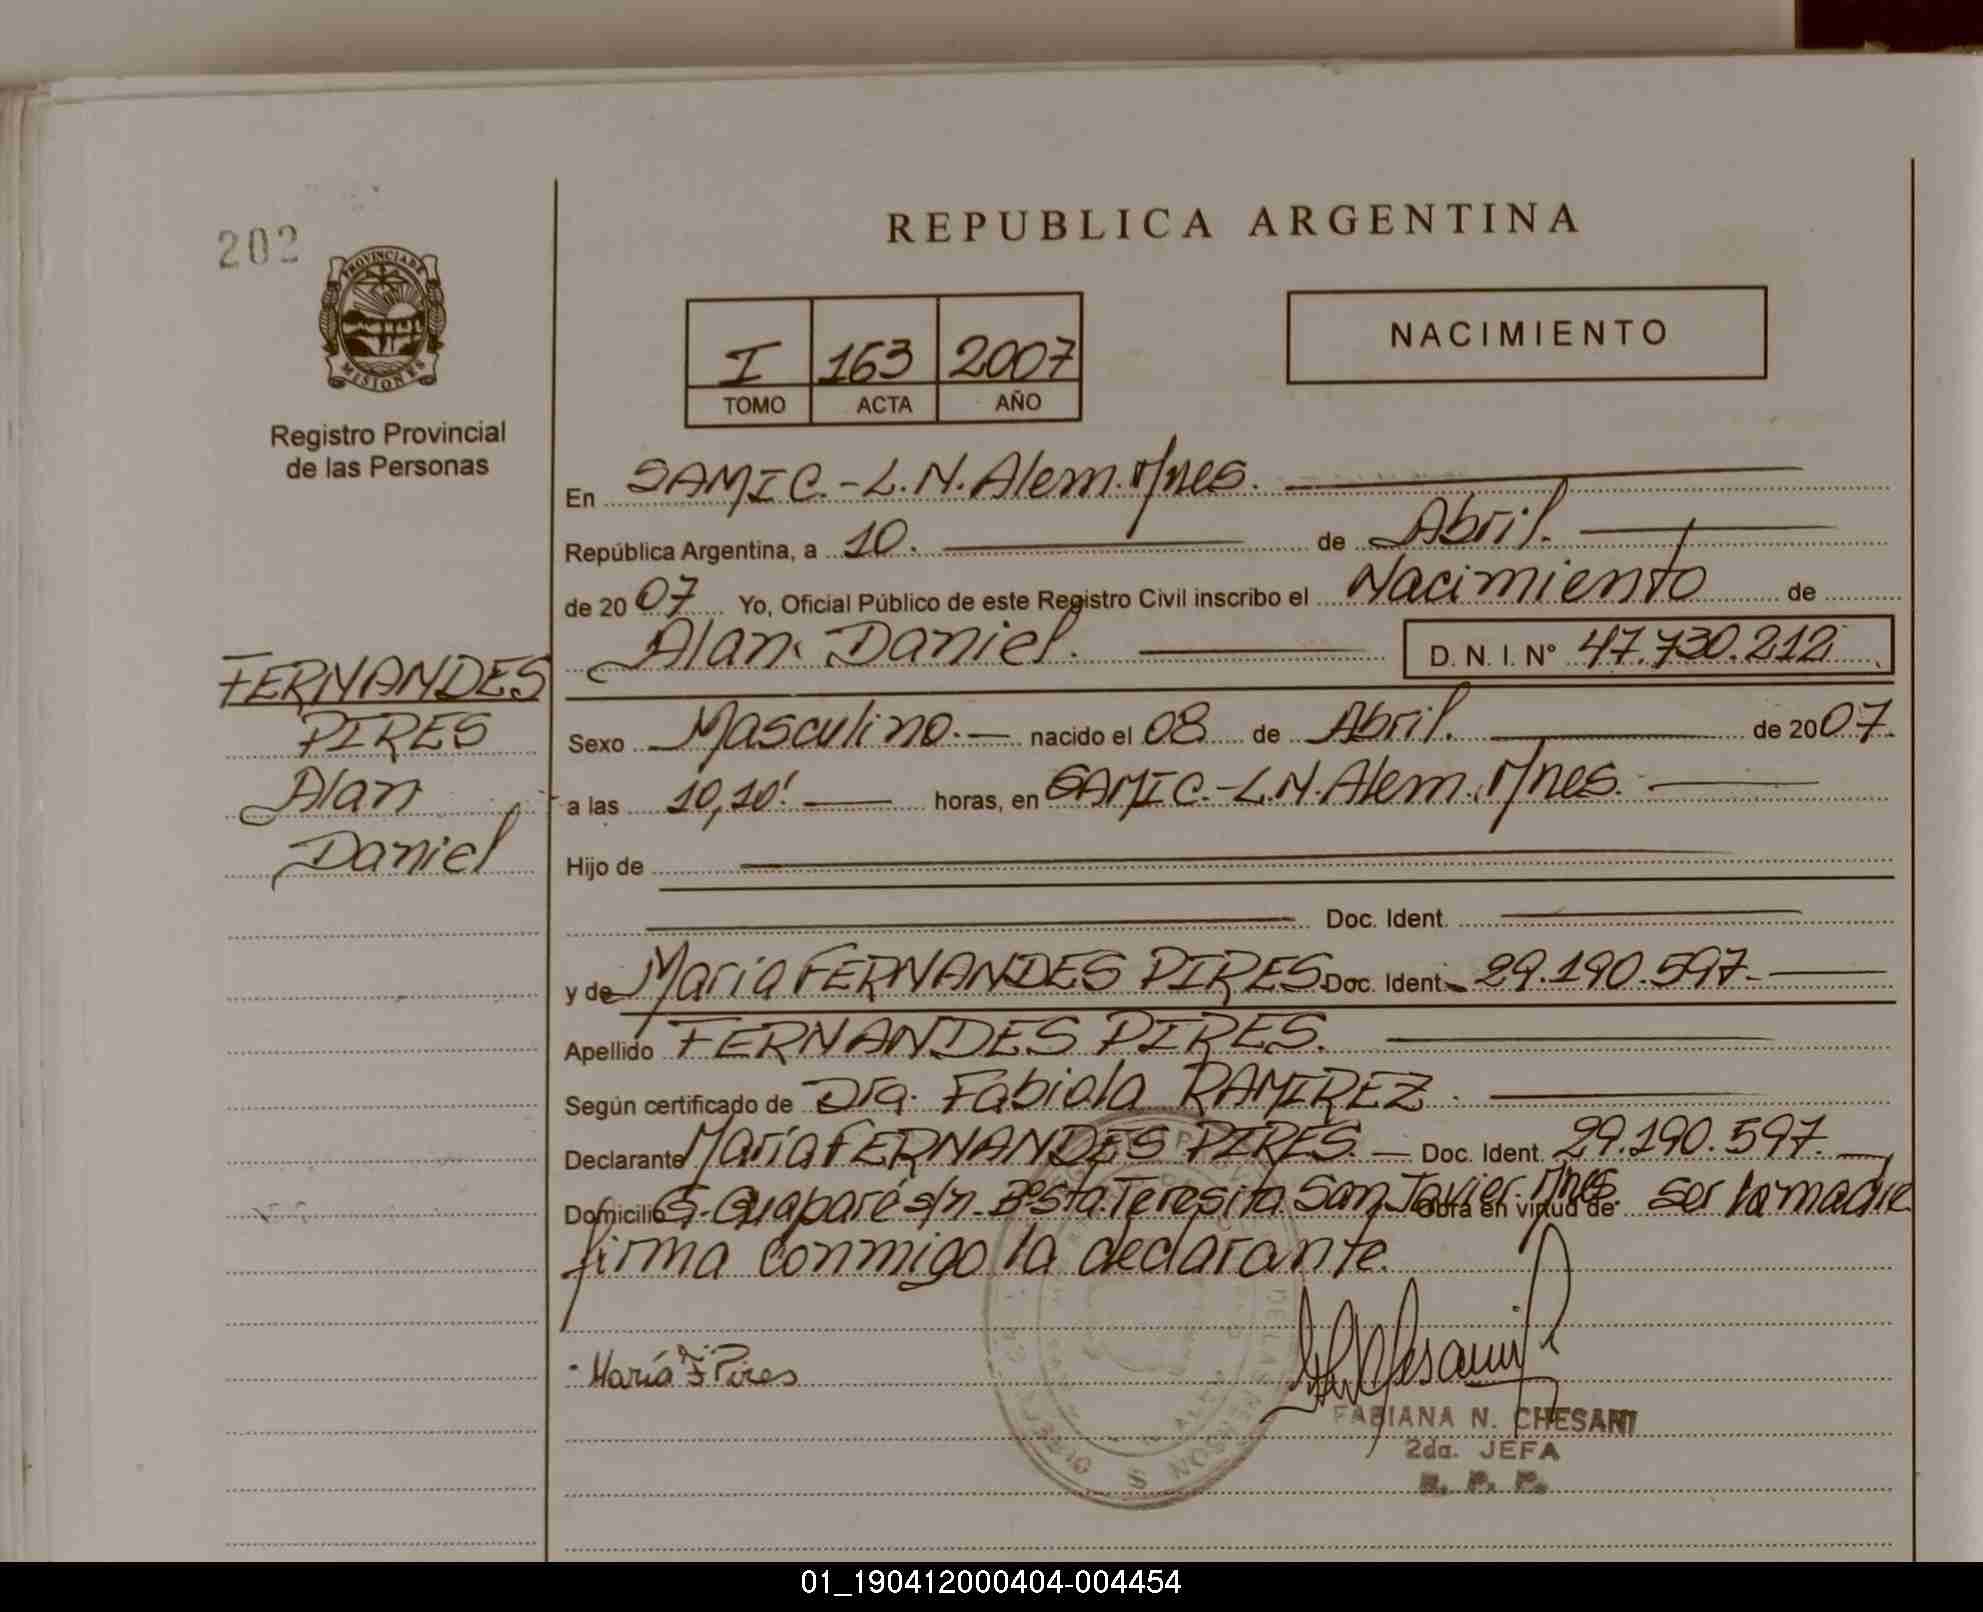 202
REPUBLICA ARGENTINA
PROVINCIA DE
MISIONES
Registro Provincial
de las Personas
I 163 2007
TOMO ACTA AÑO
NACIMIENTO
En SAMIC.-L.N.Alem.Mnes.
República Argentina, a 10. de Abril.
de 2007 Yo, Oficial Público de este Registro Civil inscribo el Nacimiento de
Alan Daniel. D. N. I. Nº 47.730.212
FERNANDES
PIRES
Alan
Daniel
Sexo Masculino.- nacido el 08 de Abril. de 2007.
a las 10,10' horas, en SAMIC.-L.N.Alem.Mnes.
Hijo de
Doc. Ident.
y de María FERNANDES PIRES. Doc. Ident. 29.190.597.-
Apellido FERNANDES PIRES.
Según certificado de Dra. Fabiola RAMIREZ.
Declarante María FERNANDES PIRES.- Doc. Ident. 29.190.597.
Domicilio G. Guaparé s/n Bº Sta.Teresita San Javier. Mnes. Obra en virtud de ser la madre
firma conmigo la declarante.
María F Pires
FABIANA N. CHESANI
2da. JEFA
R. P. P.
01_190412000404-004454